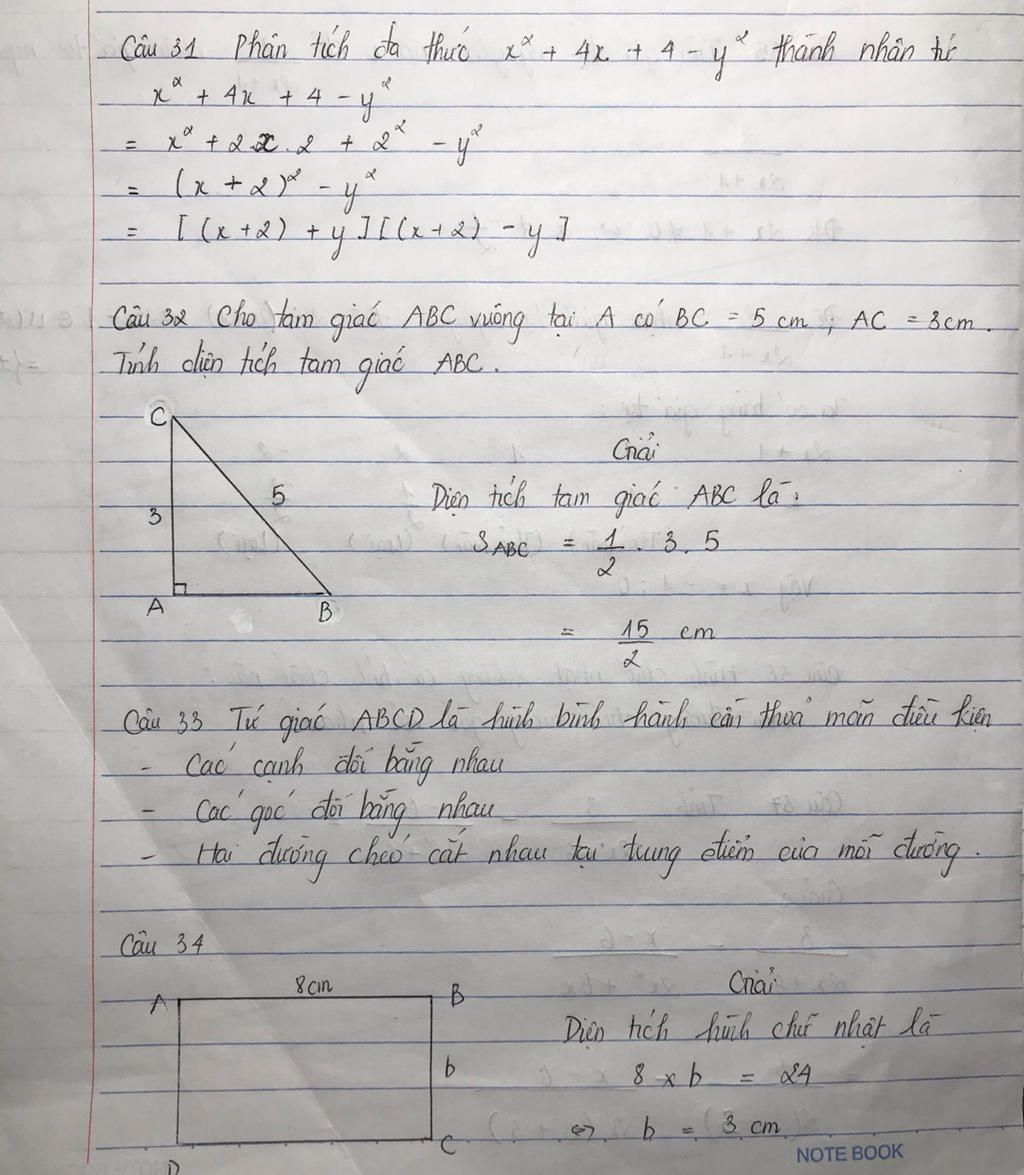 Câu 31 Phân tích đa thức x² + 4x + 4 - y² thành nhân tử
x² + 4x + 4 - y²
= x² + 2.x.2 + 2² - y²
= (x + 2)² - y²
= [(x+2) + y][(x+2) - y]
Câu 32 Cho tam giác ABC vuông tại A có BC = 5 cm ; AC = 3cm.
Tính diện tích tam giác ABC.
C
3
5
A
B
Giải
Diện tích tam giác ABC là:
S_ABC = 1/2 . 3. 5
= 15/2 cm
Câu 33 Tứ giác ABCD là hình bình hành cần thoả mãn điều kiện
- Các cạnh đối bằng nhau
- Các góc đối bằng nhau
- Hai đường chéo cắt nhau tại trung điểm của mỗi đường.
Câu 34
A 8cm B
b
D C
Giải
Diện tích hình chữ nhật là
8 x b = 24
⇔ b = 3 cm
NOTE BOOK